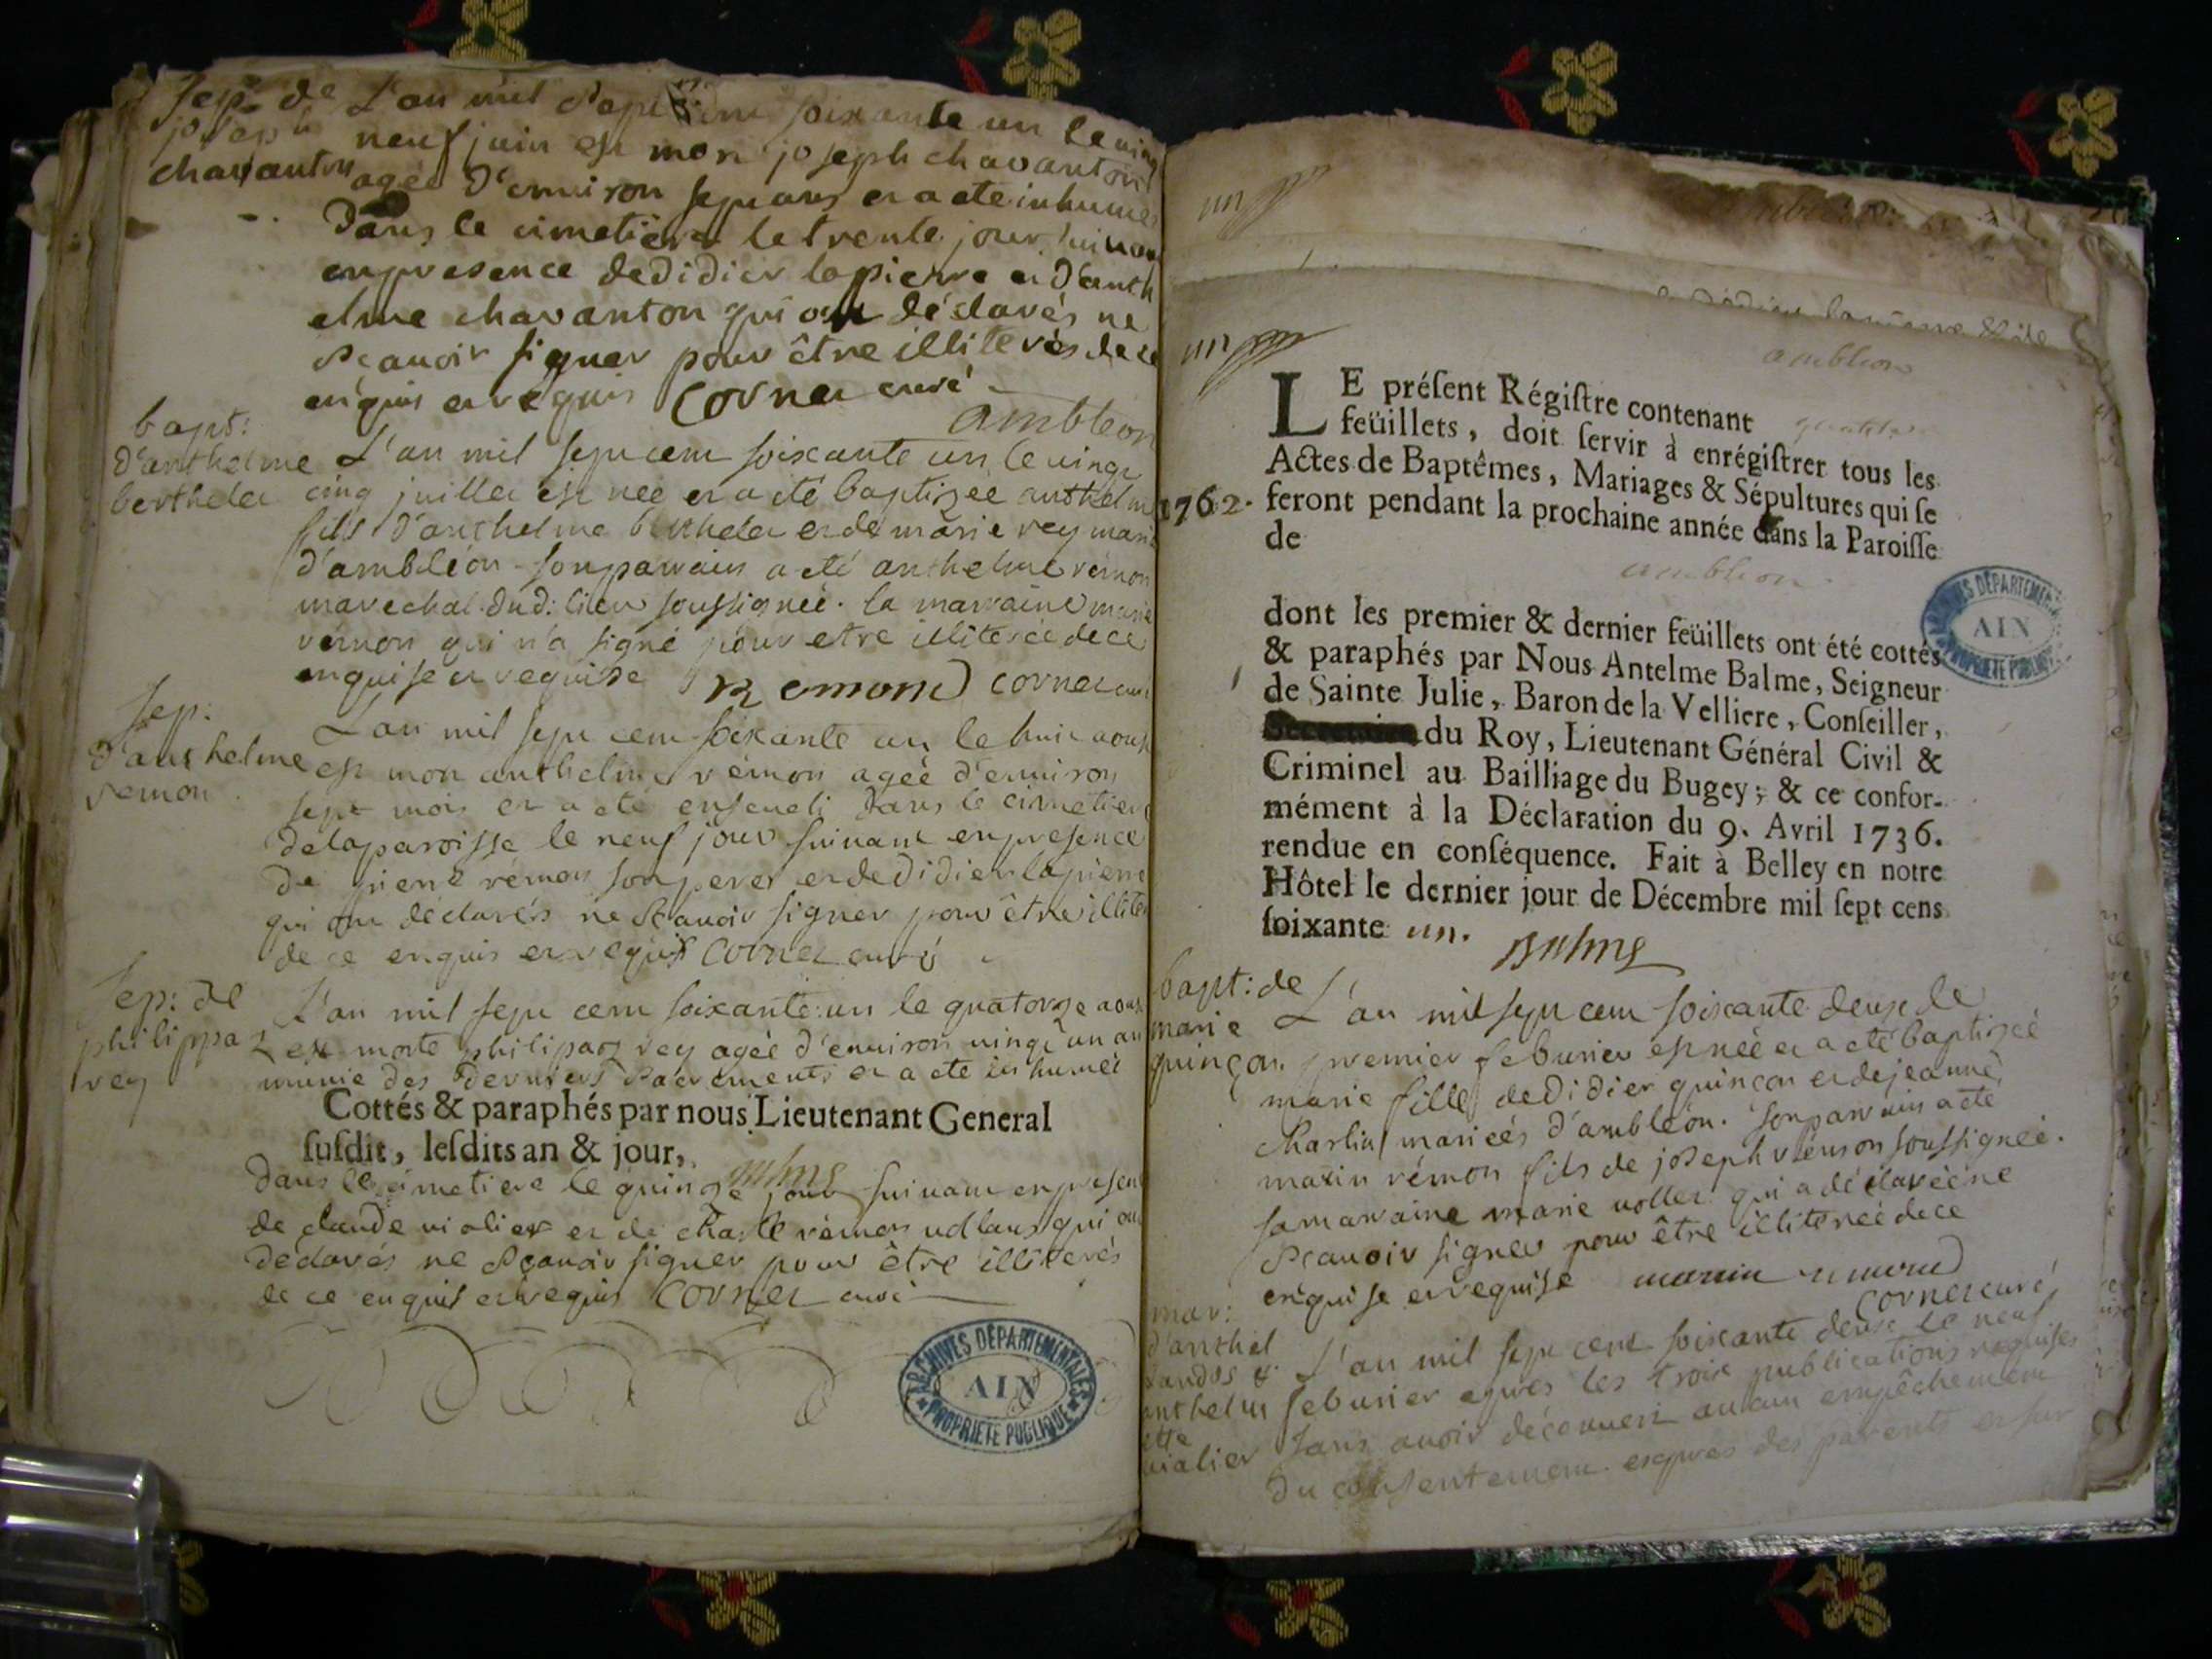 Sep: de
joseph
chavanton
L'an mil sept cent soixante un le vingt
neuf juin est mort joseph chavanton
agée d'environ sept ans et a ete inhumé
dans le cimetiere le trente jour suivant
en presence de didier lapierre et d'anth
elme chavanton qui ont déclarés ne
sçauoir signer pour être illiterés de ce
enquis et requis Cornet curé
ambleon
bapt:
d'anthelme
berthelet
L'an mil sept cent soixante un le vingt
cinq juillet est née et a eté baptizée anthelme
fils d'anthelme berthelet et de marie rey mariés
d'ambléon son parrain a eté anthelme rémon
marechal dud: lieu soussignée. la marraine marie
rémon qui n'a signé pour etre illiterée de ce
enquise et requise Remond cornet curé
Sep:
d'anthelme
remon
L'an mil sept cent soixante un le huit aoust
est mort anthelme rémon agée d'enuiron
sept mois et a eté enseueli dans le cimetiere
de la paroisse le neuf jour suivant en presence
de pierre rémon son pere et de didier lapierre
qui ont déclarés ne sçauoir signer pour être illiterés
de ce enquis et requis Cornet curé
Sep: de
philippaz
rey
L'an mil sept cent soixante un le quatorze aoust
est morte philipaz rey agée d'enuiron vingt un an
munie des derniers sacrements et a ete inhumée
Cottés & paraphés par nous Lieutenant General
susdit, lesdits an & jour,
Balme
dans le cimetiere le quinze jour suivant en presence
de claude violier et de charle rémon qui ont
declarés ne sçauoir signer pour être illiterés
de ce enquis et requis Cornet curé
ARCHIVES DÉPARTEMENTALES
AIN
PROPRIÉTÉ PUBLIQUE
un
un
ambleon
LE présent Régistre contenant quatre
feüillets, doit servir à enrégistrer tous les
Actes de Baptêmes, Mariages & Sépultures qui se
1762. feront pendant la prochaine année dans la Paroisse
de
ambleon
dont les premier & dernier feüillets ont été cottés
& paraphés par Nous Antelme Balme, Seigneur
de Sainte Julie, Baron de la Velliere, Conseiller,
du Roy, Lieutenant Général Civil &
Criminel au Bailliage du Bugey; & ce confor-
mément à la Déclaration du 9. Avril 1736.
rendue en conséquence. Fait à Belley en notre
Hôtel le dernier jour de Décembre mil sept cens
soixante un.
Balme
ARCHIVES DÉPARTEMENTALES
AIN
PROPRIÉTÉ PUBLIQUE
bapt: de
marie
quinçon
L'an mil sept cent soixante deux le
premier feburier est née et a eté baptizée
marie fille de didier quinçon et de jeanne
charlin mariées d'ambléon. son parrain a ete
marin rémon fils de joseph rémon soussignée.
sa marraine marie vollet qui a déclarée ne
sçauoir signer pour être illiterée de ce
enquise et requise marin remond
Cornet curé
mar:
d'anthel
&
anthelm
ette
violier
L'an mil sept cent soixante deux le neuf
feburier apres les trois publications requises
sans auoir découuert aucun empêchement
du consentement exprès des parents et sur